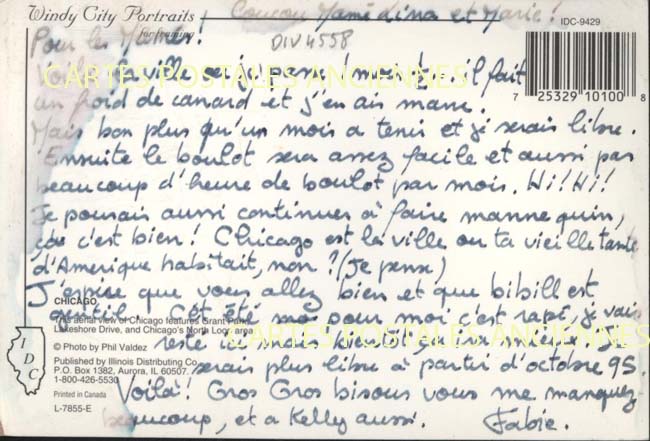 Windy City Portraits
for framing
Coucou Mamé dina et Marie!
IDC-9429
DIV4558
Pour les
Voila la ville où je passe il fait
un froid de canard et j'en ais marre.
7 25329 10100 8
CARTES POSTALES ANCIENNES
Mais bon plus qu'un mois a tenir et je serais libre.
Ensuite le boulot sera assez facile et aussi pas
beaucoup d'heure de boulot par mois. Hi! Hi!
Je pourais aussi continues à faire mannequin,
ça c'est bien! Chicago est la ville ou ta vieille tante
d'Amerique habitait, non? (Je pense)
J'espère que vous allez bien et que bibill est
CHICAGO
gentille. Cet été moi pour moi c'est rapé, je vais
This aerial view of Chicago features Grant Park,
Lakeshore Drive, and Chicago's North Loop area
CARTES POSTALES ANCIENNES
IDC
© Photo by Phil Valdez
reste ici mais bientôt, ça ira mieux, je
Published by Illinois Distributing Co.
P.O. Box 1382, Aurora, IL 60507.
1-800-426-5530
serais plus libre à partir d'octobre 95.
Printed in Canada
Voilà! Gros Gros bisous vous me manquez
L-7855-E
beaucoup, et a Kelly aussi. Fabie.